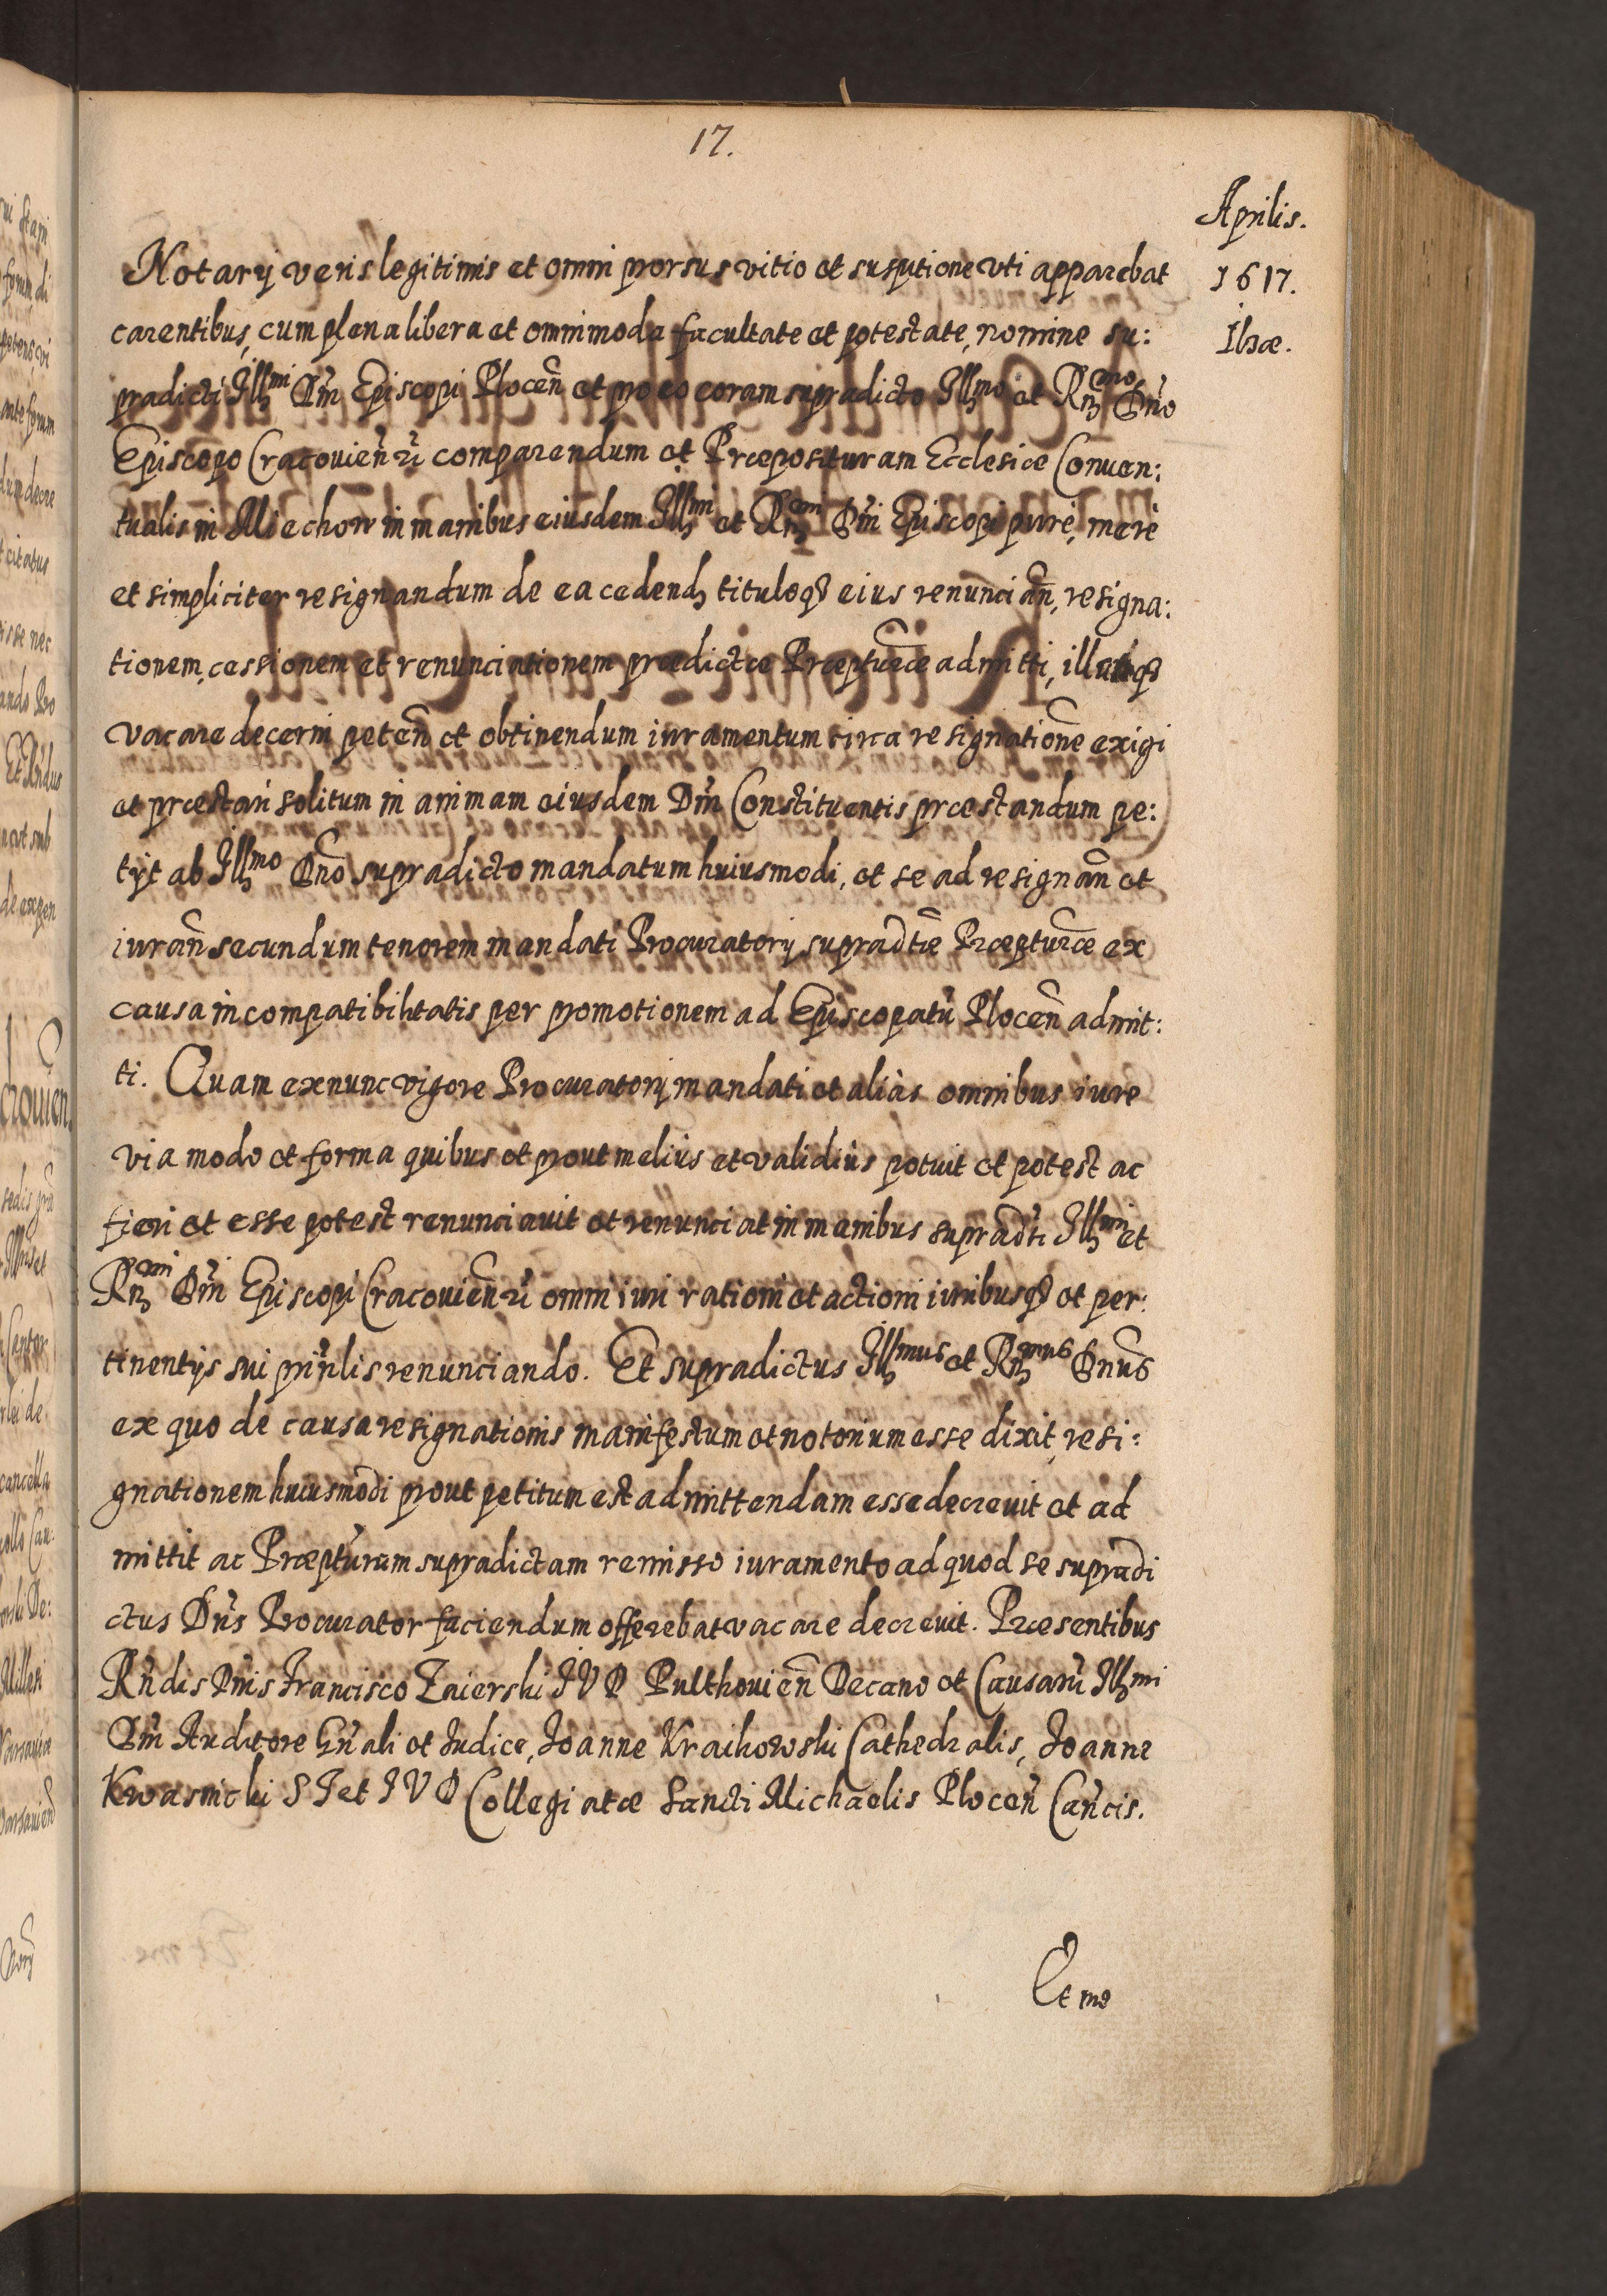 17.
Aprilis.
1617.
Ilzæ.
Notarij veris legitimis et omni prorsus vitio et susptione vti apparebat
carentibus, cum plena libera et omnimoda facultate et potestate, nomine su:
pradicti Illmi Dñi Episcopi Plocen̄ et pro eo coram supradicto Illmo et Rmo Dño
Episcopo Cracouien̄ comparendum et Præposituram Ecclesiæ Conuen:
tualis in Miechow in manibus eiusdem Illmi et Rmi Dñi Episcopi purè, merè
et simpliciter resignandum de ea cedend tituloq eius renuncian̄, resigna:
tionem, cessionem et renunciationem prædictæ Præptur̄æ admitti, illamq
vacare decerni peten̄ et obtinendum iuramentum circa resignation̄e exigi
et præstari solitum in animam eiusdem Dñi Constituentis præstandum pe:
tijt ab Illmo Dño supradicto mandatum huiusmodi, et se ad resignan̄ et
iuran̄ secundum tenorem mandati Procuratorij supradtæ Præptur̄æ ex
causa incompatibilitatis per promotionem ad Episcopatū Plocen̄ admit:
ti. Quam ex nunc vigore Procuratorij mandati et aliàs omnibus iure
via modo et forma quibus et prout meliùs et validiùs potuit et potest ac
fieri et esse potest renunciauit et renunciat in manibus supradti Illmi et
Rmi Dñi Episcopi Cracouien̄ omni iuri rationi et actioni iuribusq et per:
tinentijs sui prin̄lis renunciando. Et supradictus Illmus et Rmus Dnus
ex quo de causa resignationis manifestum et notorium esse dixit, resi:
gnationem huiusmodi prout petitum est admittendam esse decreuit et ad
mittit ac Præpturam supradictam remisso iuramento ad quod se supradi
ctus Dñs Procurator faciendum offerebat vacare decreuit. Præsentibus
Rñdis Dñis Francisco Zaierski I V D Pulthouien̄ Decano et Causarū Illmi
Dñi Auditore Gñali et Iudice, Ioanne Kraikowski Cathedralis, Ioanne
Kwasnicki S T et I V D Collegiatæ Sancti Michaelis Plocen̄ Can̄cis.
Et me